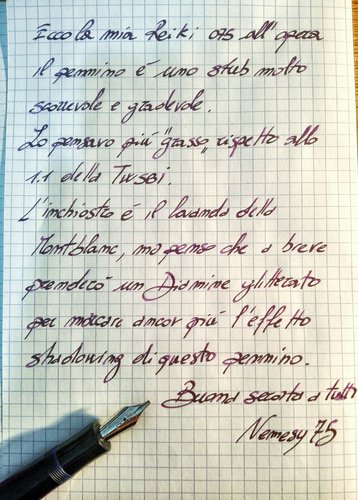 Ecco la mia Reiki 075 all'opera
il pennino é uno stub molto
scorrevole e gradevole.
Lo pensavo più "grasso" rispetto allo
1.1 della Twsbi.
L'inchiostro é il lavanda della
Montblanc, ma penso che a breve
prenderò un Diamine glitterato
per marcare ancor più l'effetto
shadowing di questo pennino.
Buona serata a tutti
Nemesy 75